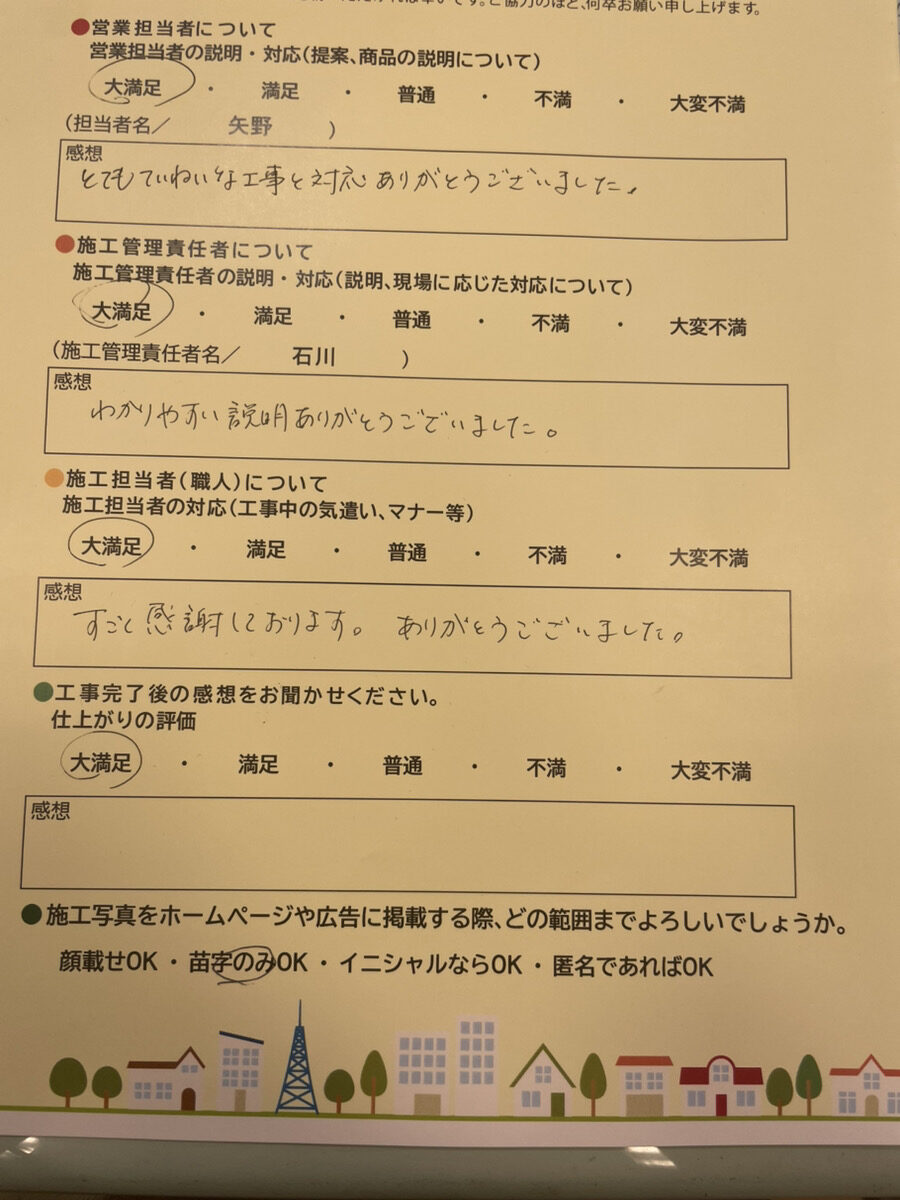 ご協力のほど、何卒お願い申し上げます。
●営業担当者について
営業担当者の説明・対応(提案、商品の説明について)
大満足 ・ 満足 ・ 普通 ・ 不満 ・ 大変不満
(担当者名/ 矢野 )
感想
とてもていねいな工事と対応ありがとうございました。
●施工管理責任者について
施工管理責任者の説明・対応(説明、現場に応じた対応について)
大満足 ・ 満足 ・ 普通 ・ 不満 ・ 大変不満
(施工管理責任者名/ 石川 )
感想
わかりやすい説明ありがとうございました。
●施工担当者(職人)について
施工担当者の対応(工事中の気遣い、マナー等)
大満足 ・ 満足 ・ 普通 ・ 不満 ・ 大変不満
感想
すごく感謝しております。 ありがとうございました。
●工事完了後の感想をお聞かせください。
仕上がりの評価
大満足 ・ 満足 ・ 普通 ・ 不満 ・ 大変不満
感想
●施工写真をホームページや広告に掲載する際、どの範囲までよろしいでしょうか。
顔載せOK ・ 苗字のみOK ・ イニシャルならOK ・ 匿名であればOK